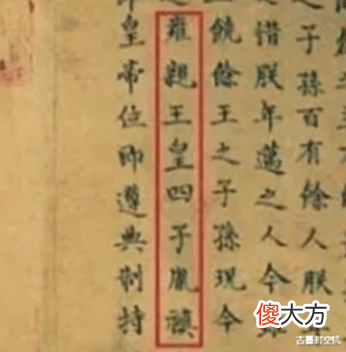 之子孫百有餘人朕
惜朕年邁之人今
饒餘王之子孫現今
雍親王皇四子胤禛
即皇帝位即遵典制持
傻大方